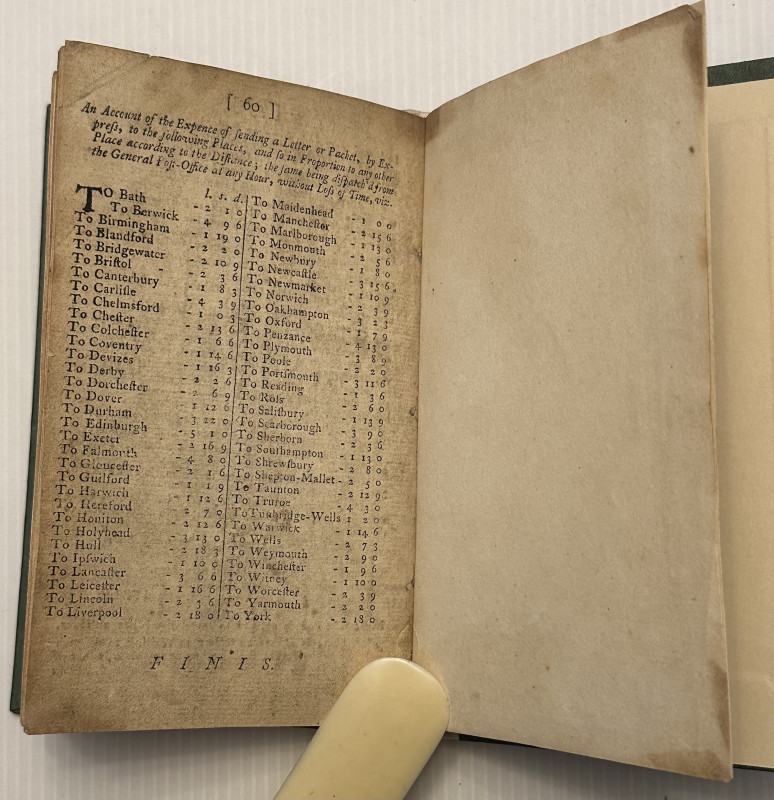 [ 60 ]
An Account of the Expence of ſending a Letter or Packet, by Ex-
preſs, to the following Places, and ſo in Proportion to any other
Place according to the Diſtance; the ſame being diſpatch'd from
the General Poſt-Office at any Hour, without Loſs of Time, viz.
l. s. d.
TO Bath - 2 1 0
To Berwick - 4 9 6
To Birmingham - 1 19 0
To Blandford - 2 2 0
To Bridgewater - 2 10 9
To Briſtol - - 2 3 6
To Canterbury - 1 8 3
To Carliſle - 4 3 9
To Chelmsford - 1 0 3
To Cheſter - 2 13 6
To Colcheſter - 1 6 6
To Coventry - 1 14 6
To Devizes - 1 16 3
To Derby - 2 2 6
To Dorcheſter - 2 6 9
To Dover - 1 12 6
To Durham - 3 12 0
To Edinburgh - 5 1 0
To Exeter - 2 16 9
To Falmouth - 4 8 0
To Gloucester - 2 1 6
To Guilford - 1 1 9
To Harwich - 1 12 6
To Hereford - 2 7 0
To Honiton - 2 12 6
To Holyhead - 3 13 0
To Hull - 2 18 3
To Ipſwich - 1 10 0
To Lancaſter - 3 6 6
To Leiceſter - 1 16 6
To Lincoln - 2 3 6
To Liverpool - 2 18 0
To Maidenhead - 1 0 0
To Mancheſter - 2 15 6
To Marlborough - 1 13 0
To Monmouth - 2 5 6
To Newbury - 1 8 0
To Newcaſtle - 3 15 6
To Newmarket - 1 10 9
To Norwich - 2 3 9
To Oakhampton - 3 2 3
To Oxford - 1 7 9
To Penzance - 4 13 0
To Plymouth - 3 8 9
To Poole - 2 2 0
To Portſmouth - 3 11 6
To Reading - 1 3 6
To Roſs - 2 6 0
To Saliſbury - 1 13 9
To Scarborough - 3 9 0
To Sherborn - 2 3 6
To Southampton - 1 13 0
To Shrewſbury - 2 8 0
To Shepton-Mallet - 2 5 0
To Taunton - 2 12 9
To Truroe - 4 3 0
To Tunbridge-Wells 1 2 0
To Warwick - 1 14 6
To Wells - 2 7 3
To Weymouth - 2 9 0
To Wincheſter - 1 9 6
To Witney - 1 10 0
To Worceſter - 2 3 9
To Yarmouth - 2 2 0
To York - 2 18 0
F I N I S.